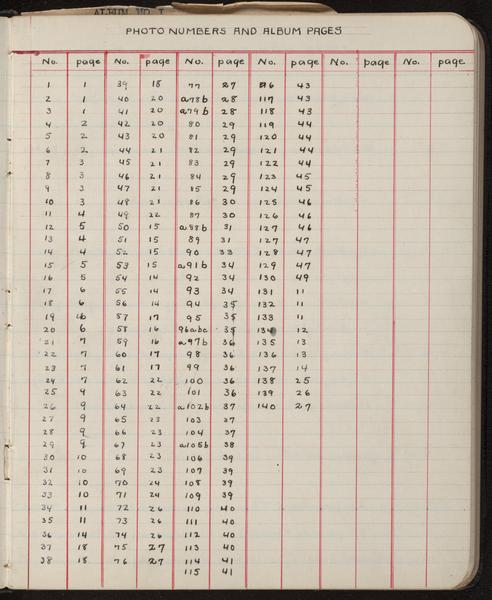 ALBUM NO. I
PHOTO NUMBERS AND ALBUM PAGES
No. page No. page No. page No. page No. page No. page
1 1 39 18 77 27 116 43
2 1 40 20 a78b 28 117 43
3 1 41 20 a79b 28 118 43
4 2 42 20 80 29 119 44
5 2 43 20 81 29 120 44
6 2 44 21 82 29 121 44
7 3 45 21 83 29 122 44
8 3 46 21 84 29 123 45
9 3 47 21 85 29 124 45
10 3 48 21 86 30 125 46
11 4 49 22 87 30 126 46
12 5 50 15 a88b 31 127 46
13 4 51 15 89 31 127 47
14 4 52 15 90 33 128 47
15 5 53 15 a91b 34 129 47
16 5 54 14 92 34 130 49
17 6 55 14 93 34 131 11
18 6 56 14 94 35 132 11
19 16 57 17 95 35 133 11
20 6 58 16 96abc 35 134 12
21 7 59 16 a97b 36 135 13
22 7 60 17 98 36 136 13
23 7 61 17 99 36 137 14
24 7 62 22 100 36 138 25
25 4 63 22 101 36 139 26
26 9 64 22 a102b 37 140 27
27 9 65 23 103 37
28 9 66 23 104 37
29 9 67 23 a105b 38
30 10 68 23 106 39
31 10 69 23 107 39
32 10 70 24 108 39
33 10 71 24 109 39
34 11 72 26 110 40
35 11 73 26 111 40
36 14 74 26 112 40
37 18 75 27 113 40
38 18 76 27 114 41
115 41